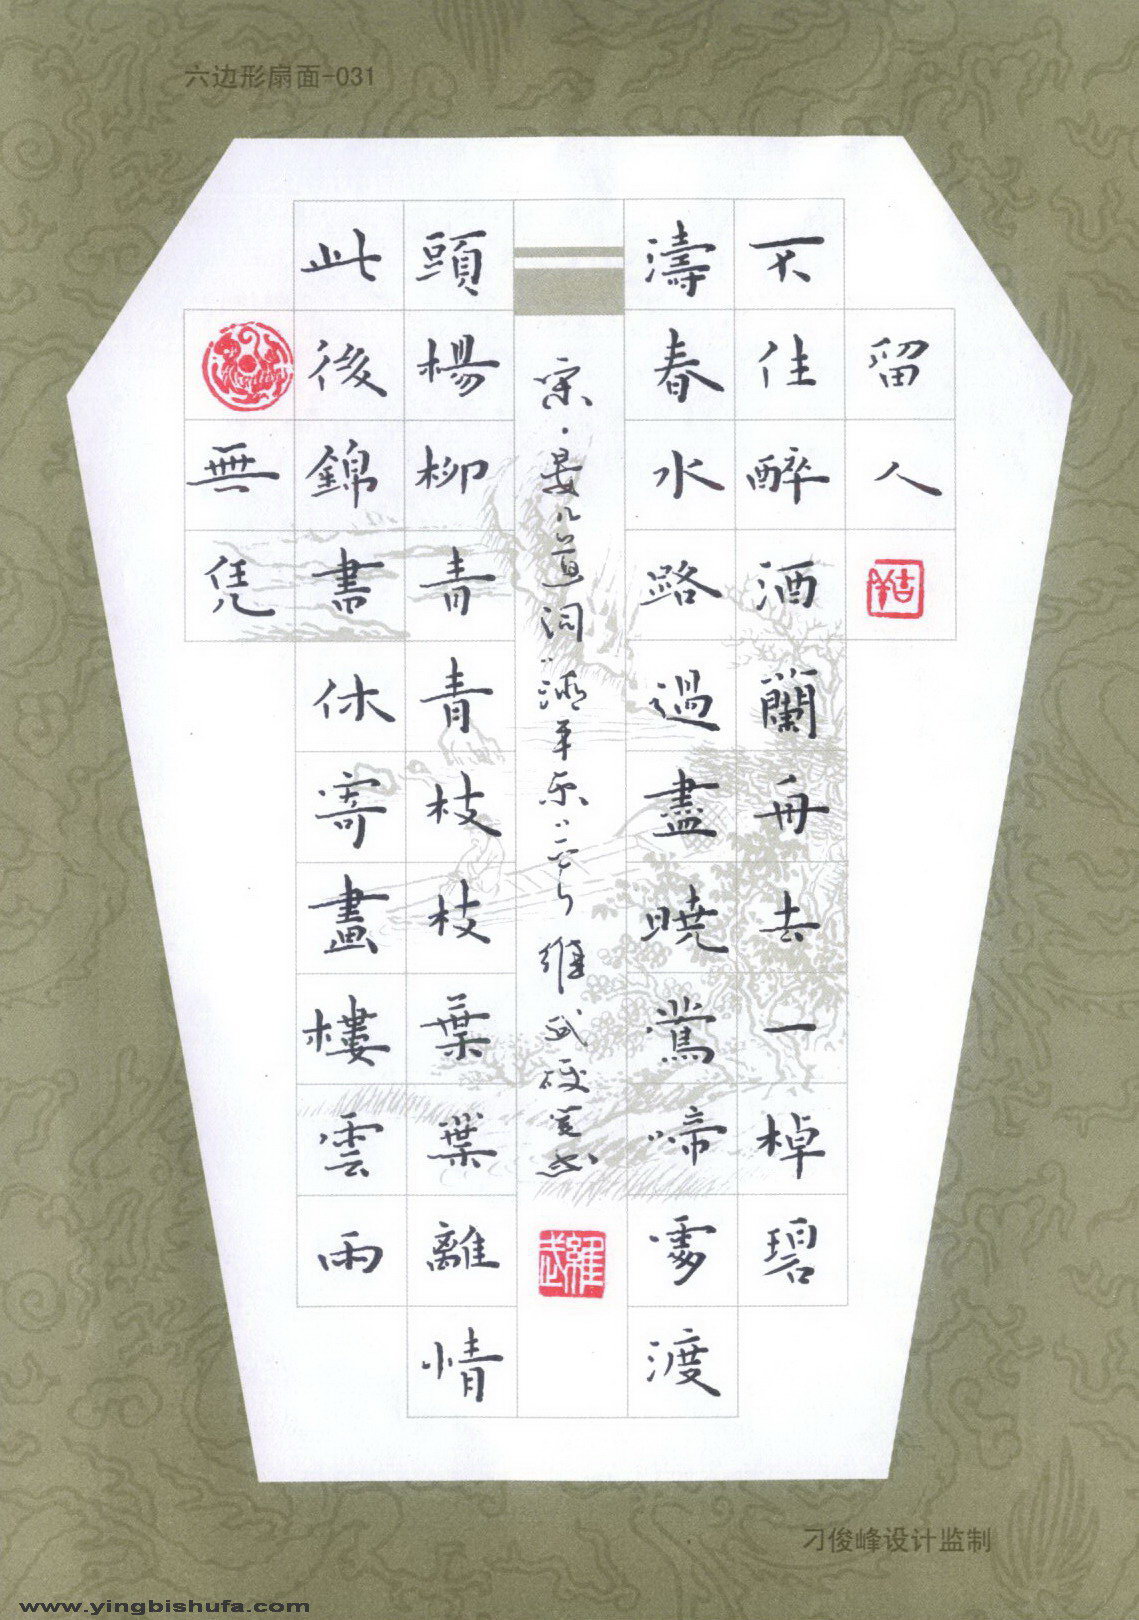 六边形扇面-031
留人
不住醉酒蘭舟去一棹碧
濤春水路過盡曉鶯啼處渡
宋·晏几道词“清平乐”維武硬筆書
頭楊柳青青枝枝葉葉離情
此後錦書休寄畫樓雲雨
無凭
刁俊峰设计监制
www.yingbishufa.com